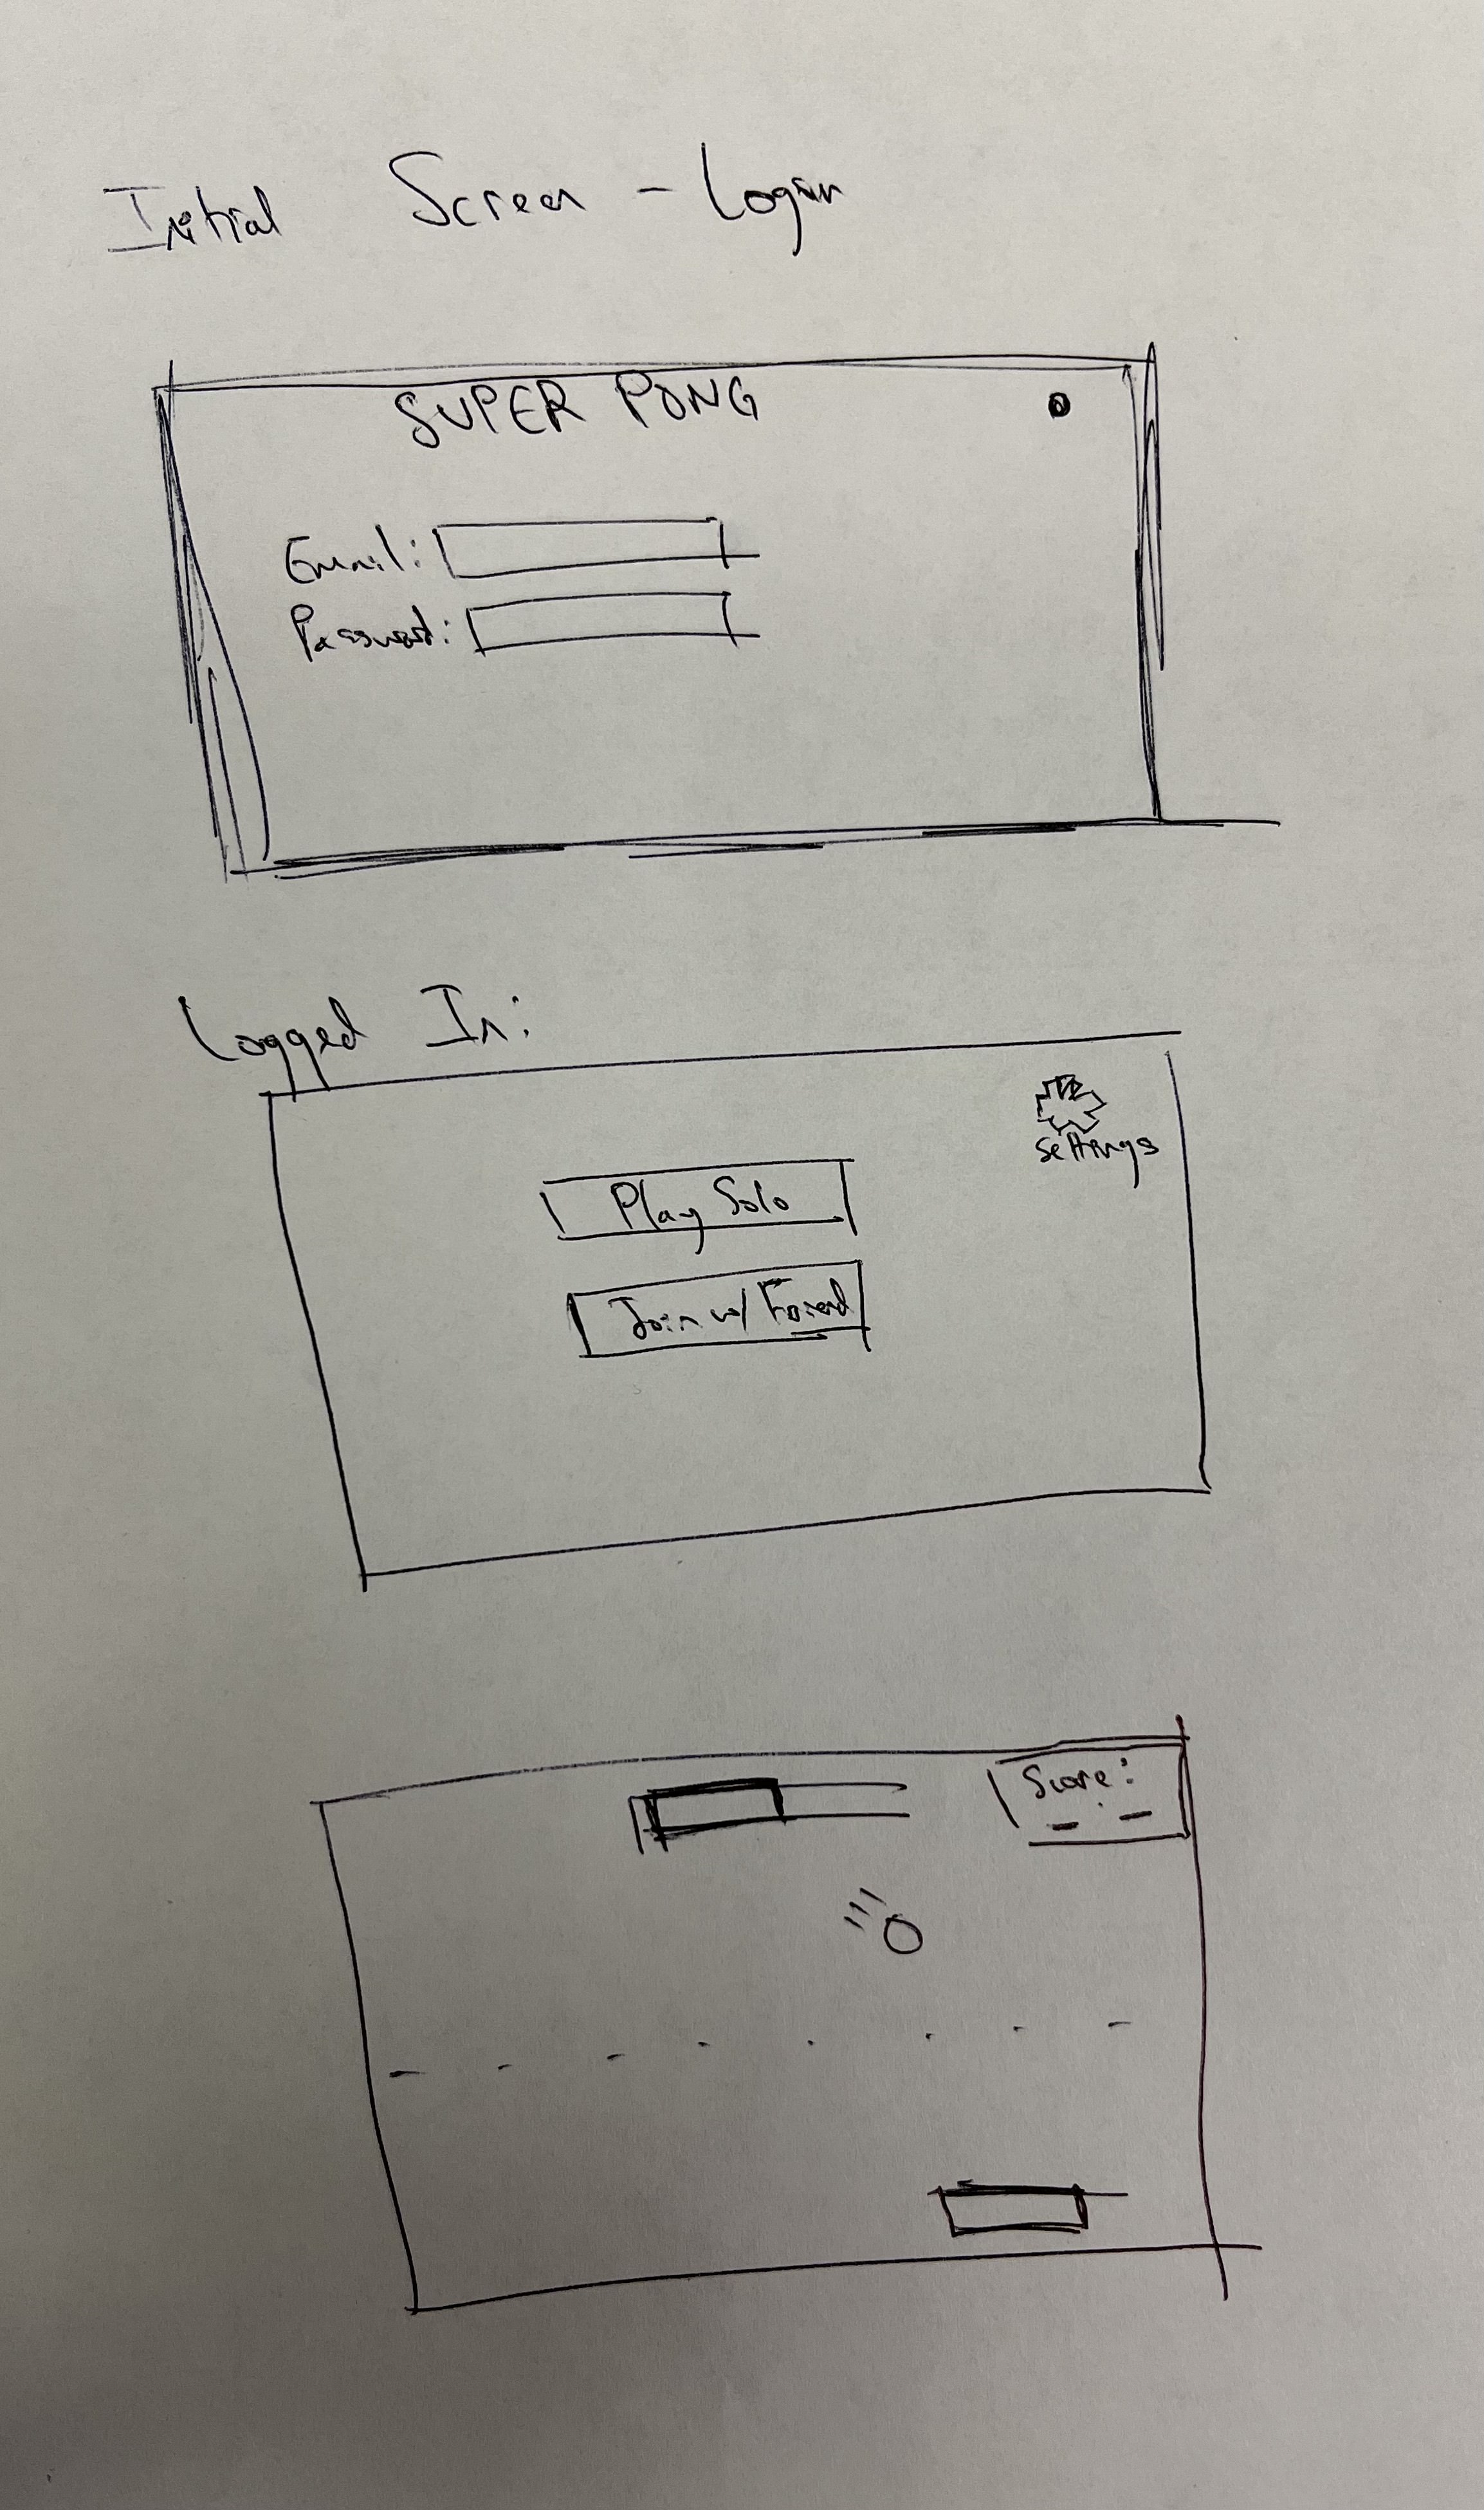 Initial Screen - Login
SUPER PONG
Email:
Password:
Logged In:
settings
Play Solo
Join w/ Friend
Score: